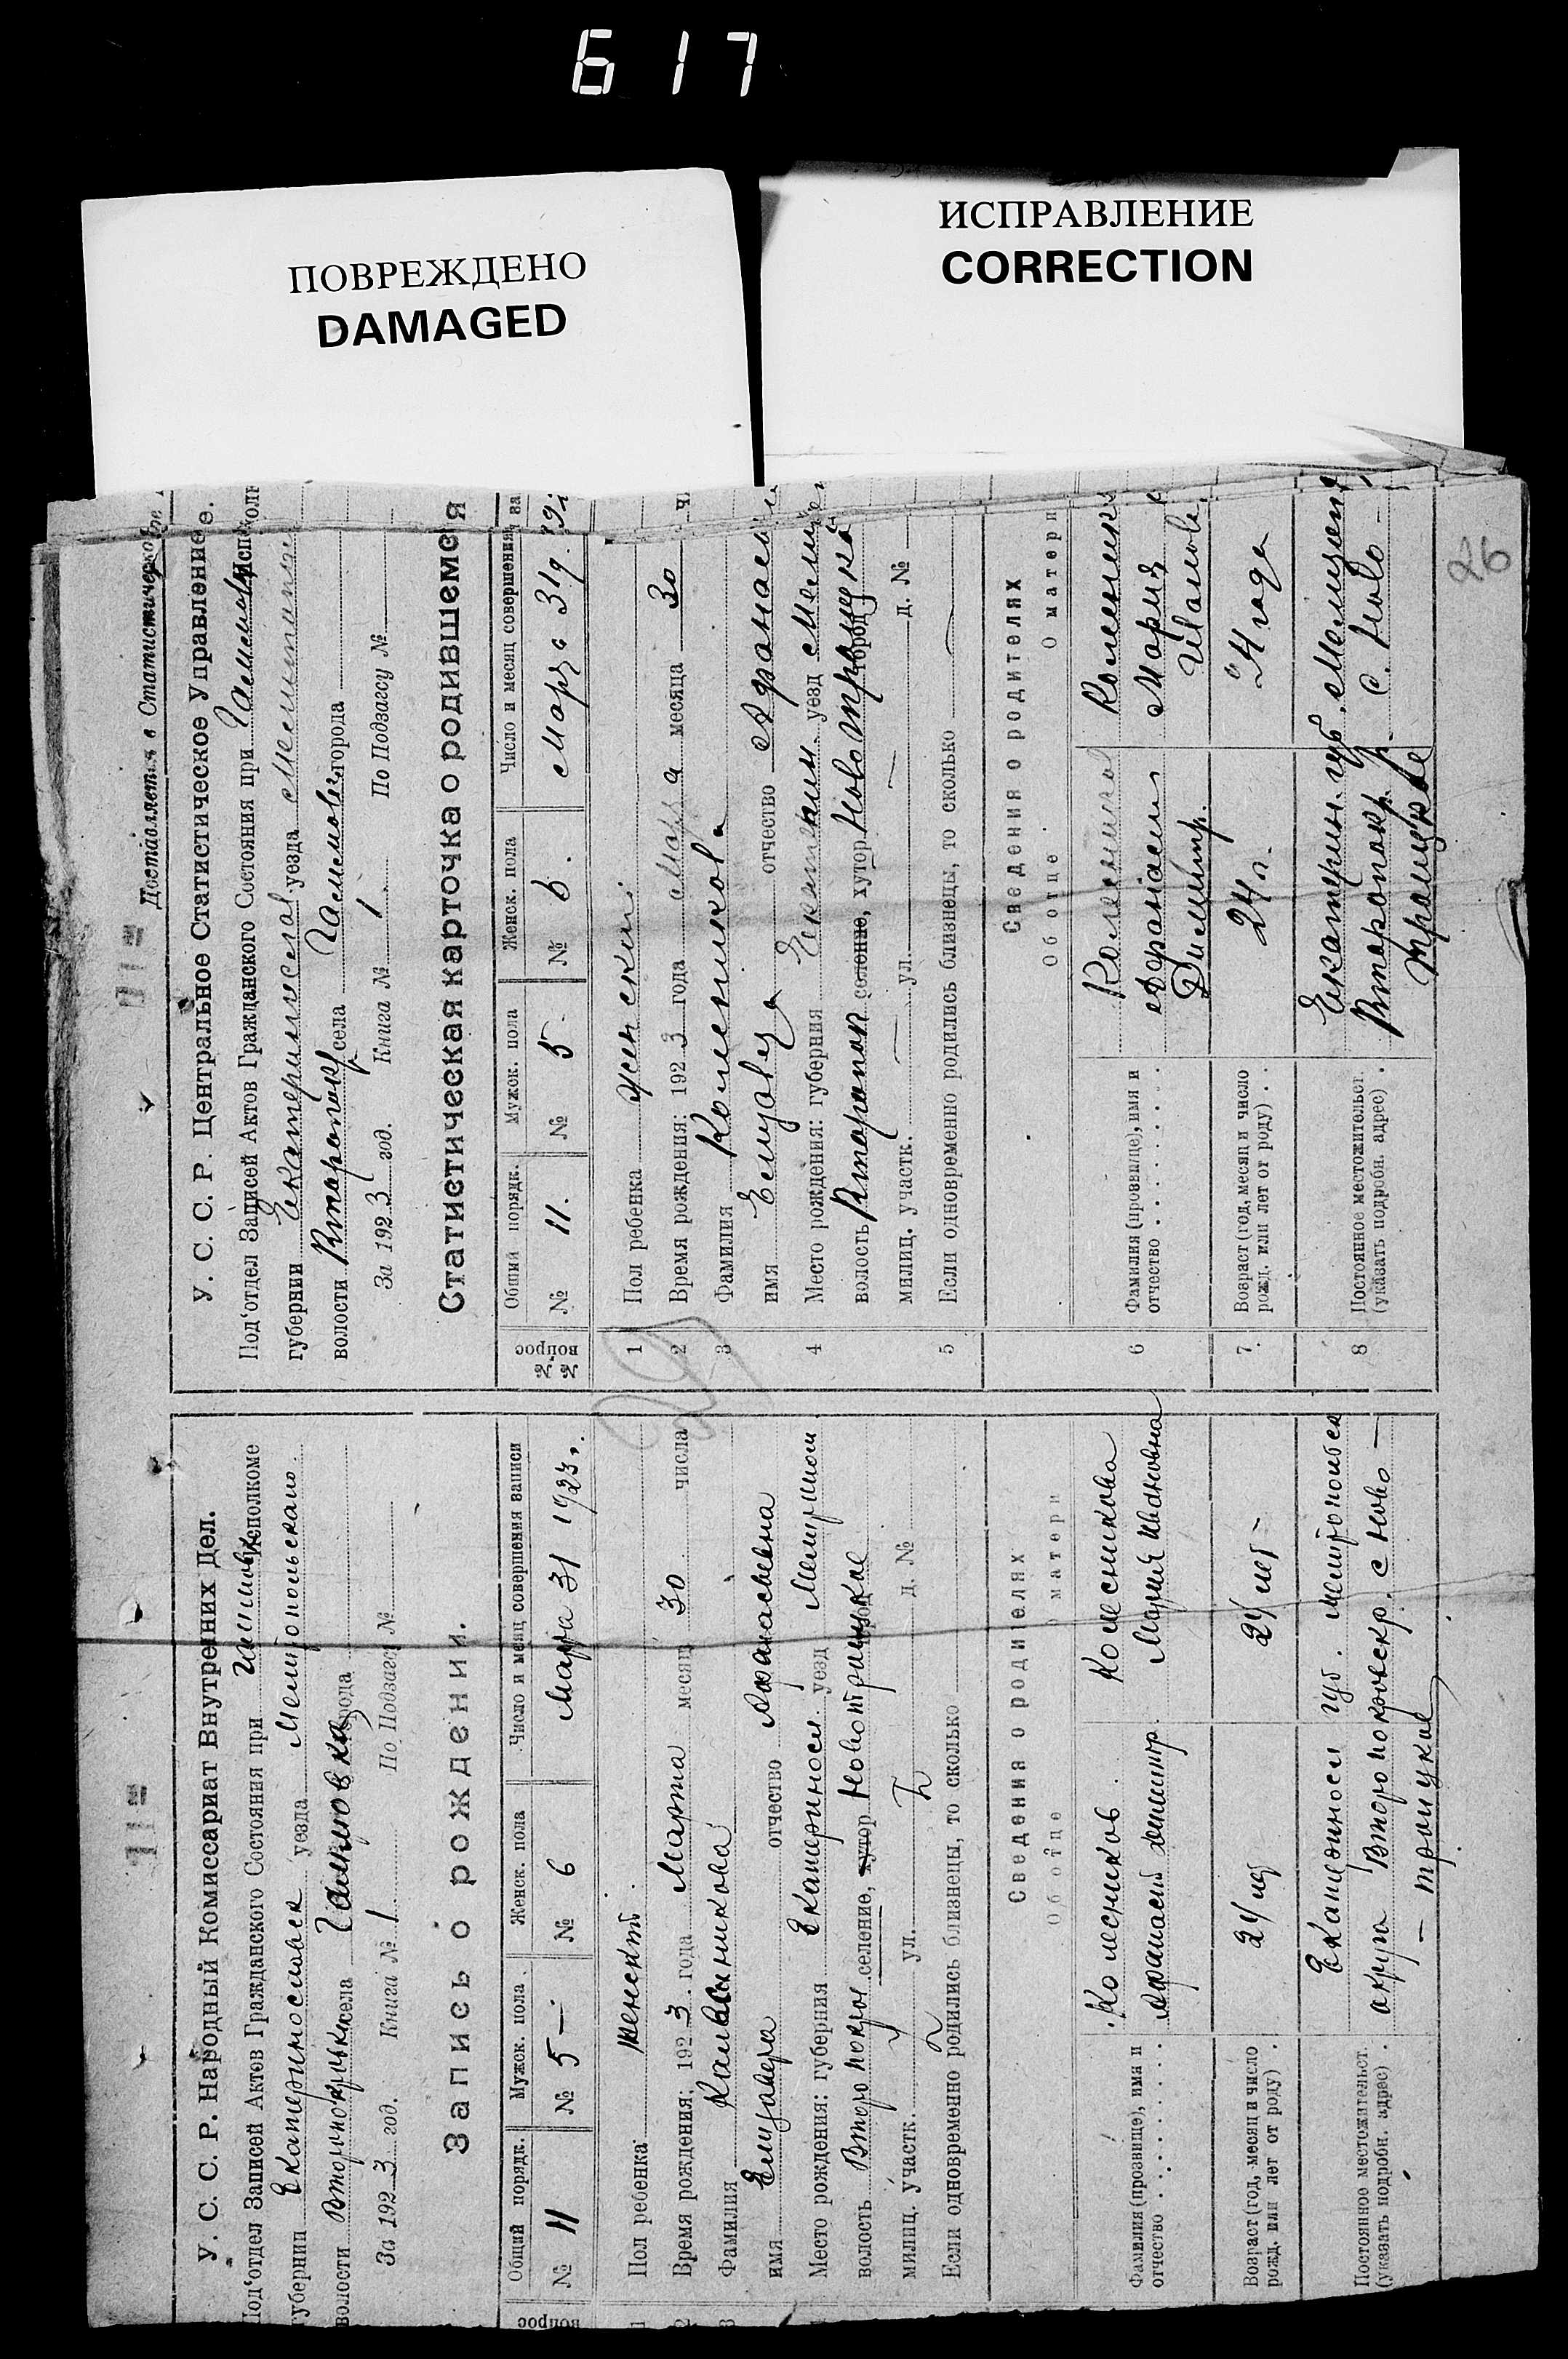 617
ПОВРЕЖДЕНО
DAMAGED
ИСПРАВЛЕНИЕ
CORRECTION
= 11 =
У. С. С. Р. Народный Комиссариат Внутренних Дел.
Под'отдел Записей Актов Гражданского Состояния при исполкоме
губернии Екатеринославск уезда Мелитопольского
волости села города
За 1923 год. Книга № 1 По Подзагсу №
Запись о рождении.
вопрос
Общий порядк. Мужск. пола Женск. пола Число и меяц совершения записи
№ 11 № 5 — № 6 Марта 31 1923 г.
1 Пол ребенка женский
2 Время рождения: 1923 года Марта месяц 30 числа
3 Фамилия
имя Елизавета отчество Афанасьевна
Место рождения: губерния Екатериносл уезд
волость Второпокров селение, хутор Новотроицкое
милиц. участк. ул. д. №
Если одновременно родились близнецы, то сколько
Сведения о родителях
Об отце О матери
Фамилия (прозвище), имя и отчество Колесников Афанасий Дмитр. Колесникова Мария Ивановна
Возраст (год, месяц и число рожд. или лет от роду) 24 лет 24 лет
Постоянное местожительст. (указать подробн. адрес) Екатериносл губ. Мелитопольск
округа Второпокровскр. с Ново —
— троицкое
= 11 =
Доставляется в Статистическое
У. С. С. Р. Центральное Статистическое Управление.
Под'отдел Записей Актов Гражданского Состояния при
губернии Екатеринослав уезда
волости Второпокр села города
За 1923 год. Книга № 1 По Подзагсу №
Статистическая карточка о родившемся
№№ вопрос
Общий порядк. Мужск. пола Женск. пола Число и месяц совершения за
№ 11. № 5 № 6. Марта 31 д. 192
1 Пол ребенка женский
2 Время рождения: 1923 года Марта месяца 30 чи
3 Фамилия Колесникова
имя Елизавета отчество Афанась
4 Место рождения: губерния Екатерин. уезд Мелит
волость Второпок селение, хутор Новотроицкой город
милиц. участк. ул. д. №
5 Если одновременно родились близнецы, то сколько
Сведения о родителях
Об отце О матери
6 Фамилия (прозвище), имя и отчество Колесников Афанасий Дмитр. Колесник Мария Иванов
7. Возраст (год, месяц и число рожд. или лет от роду) 24 л. 24 года
8 Постоянное местожительст. (указать подробн. адрес) Екатерин. губ. Мелитоп
Второпокр. р. с. Ново —
троицкое
26